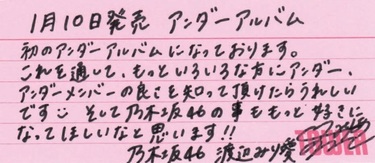 1月10日発売 アンダーアルバム
初のアンダーアルバムになっております。
これを通して、もっといろいろな方にアンダー、
アンダーメンバーの良さを知って頂けたらうれしい
です そして乃木坂46の事ももっと好きに
なってほしいなと思います!!
乃木坂46 渡辺みり愛
TOWER